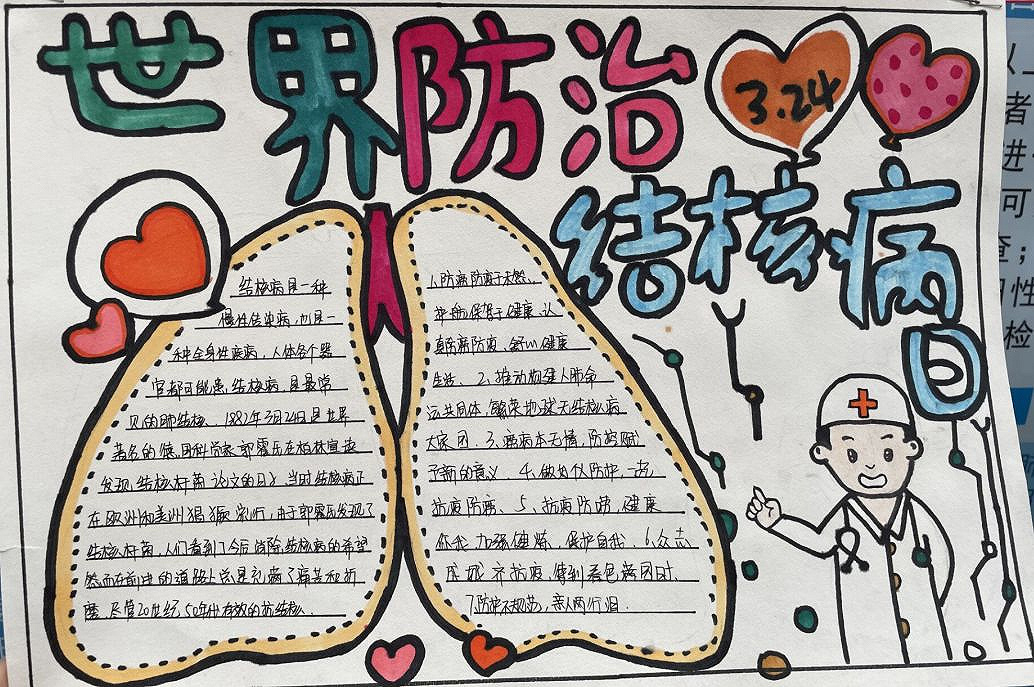 世界防治
3.24
结核病
日
结核病是一种
慢性传染病，也是一
种全身性疾病，人体各个器
官都可能患结核病，最常
见的肺结核。1882年3月24日是世界
著名的德国科学家郭霍氏在柏林宣读
发现结核杆菌论文的日子，当时结核病正
在欧洲和美洲猖獗流行，由于郭霍氏发现了
结核杆菌，人们看到了今后消除结核病的希望
然而在前进的道路上总是充满了痛苦和折
磨。尽管20世纪50年代有效的抗结核
1、防痨防疫于未然、
护肺保驾于健康、认
真防痨防疫，舒心健康
生活。2、推动构建人肺命
运共同体，繁荣地球无结核病
大家园。3、痨病本无情，防痨赋
予新的意义。4、做好仪防护，一起
抗疫防痨。5、抗疫防痨，健康
你我，加强锻炼，保护自我。6、众志
成城齐抗疫，
7、防护不规范，亲人两行泪。
以上
者
进
可
查；
性
检